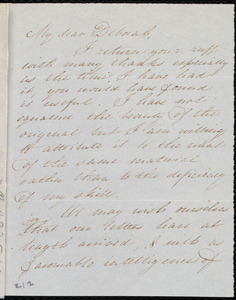 My dear Deborah,
I return your ruff
with many thanks especially
as the time I have had
it, you would have found
it useful. I have not
equalled the beauty of the
original but I am willing
to attribute it to the want
of the same material
rather than to the deficiency
of my skill.
We may wish
that our letters have at
length arrived, & with as
favorable intelligence of
212